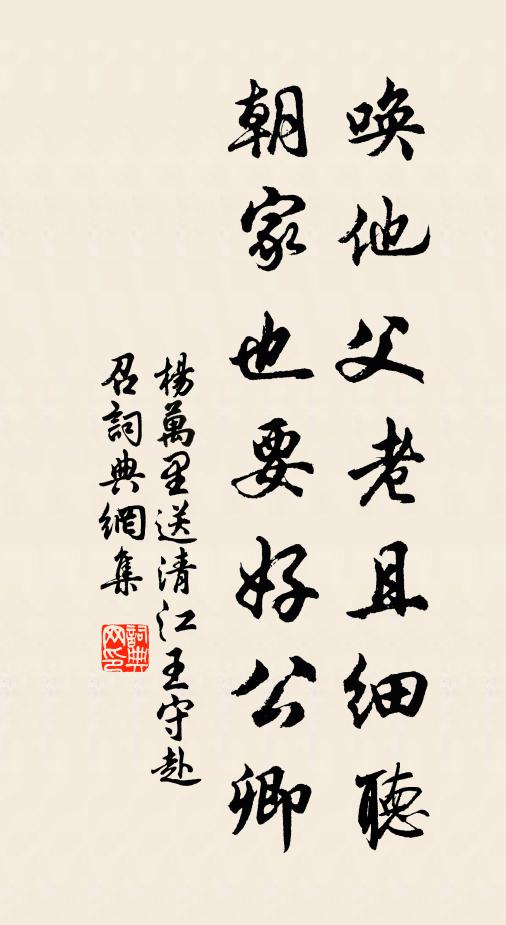 唤他父老且细聽
朝家也要好公卿
楊萬里送清江王守赴
召詞典網集
詞典网印